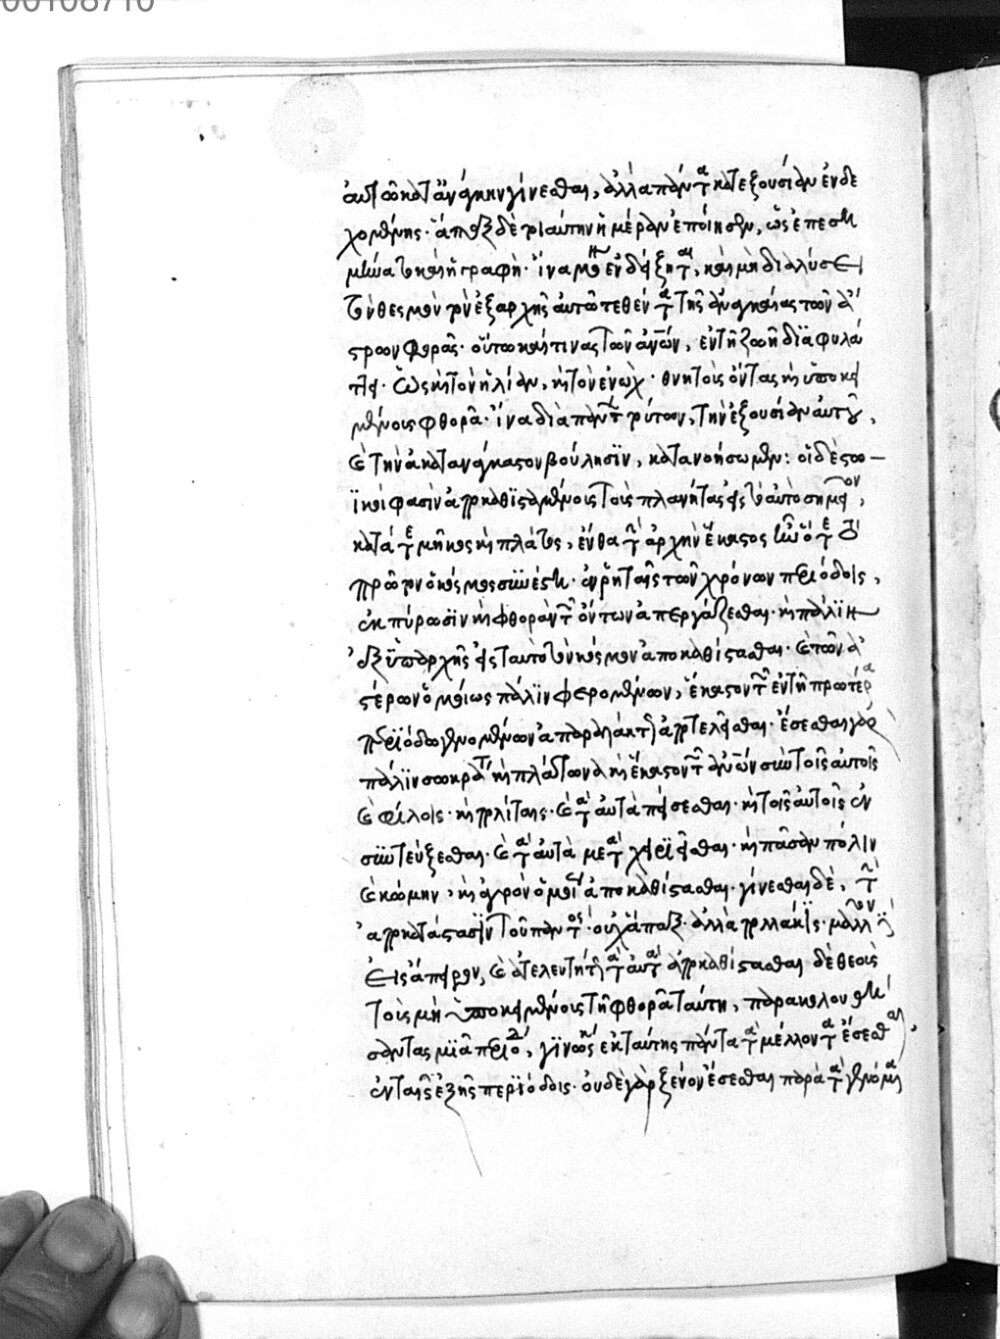 αὐτῷ κατ' ἀνάγκην γίνεσθαι, ἀλλὰ πάντα κατ' ἐξουσίαν ἐνδε
χομένης· ἅπαξ δὲ τοιαύτην ἡμέραν ἐποίησεν, ὡς ἐπεση
μήνατο καὶ ἡ γραφή· ἵνα μόνον ἐνδείξηται, καὶ μὴ διαλύσει
τὸν θεσμὸν τὸν ἐξαρχῆς αὐτῷ τεθέντα τῆς ἀναγκαίας τῶν ἀ
στρων φορᾶς· οὕτω καί τινας τῶν ἀνῶν, ἐν τῇ ζωῇ διαφυλά
ττει· ὡς καὶ τὸν ἠλίαν, καὶ τὸν ἐνώχ· θνητοὺς ὄντας καὶ ὑποκει
μένους φθορᾷ· ἵνα διὰ πάντων τούτων, τὴν ἐξουσίαν αὐτοῦ,
καὶ τὴν ἀκατανάγκαστον βούλησιν, κατανοήσωμεν: οἱ δὲ στω
ϊκοί φασὶν ἀποκαθισταμένους τοὺς πλανήτας εἰς τὸ αὐτὸ σημεῖον,
κατά τε μῆκος καὶ πλάτος, ἔνθα τὴν ἀρχὴν ἕκαστος ἦν ὅτε τὸ
πρῶτον ὁ κόσμος συνέστη· ἐν ῥηταῖς τῶν χρόνων περιόδοις,
ἐκπύρωσιν καὶ φθορὰν τῶν ὄντων ἀπεργάζεσθαι· καὶ πάλιν
ἐξ ὑπαρχῆς εἰς ταυτὸ τὸν κόσμον ἀποκαθίστασθαι· καὶ τῶν ἀ
στέρων ὁμοίως πάλιν φερομένων, ἕκαστον τῶν ἐν τῇ προτέρα
περιόδω γενομένων ἀπαραλλάκτως ἀποτελεῖσθαι· ἔσεσθαι γὰρ
πάλιν σωκράτην καὶ πλάτωνα καὶ ἕκαστον τῶν ἀνῶν σὺν τοῖς αὐτοῖς
καὶ φίλοις· καὶ πολίταις· καὶ τὰ αὐτὰ πείσεσθαι· καὶ τοῖς αὐτοῖς ἐν
συντεύξεσθαι· καὶ τὰ αὐτὰ μεταχειριεῖσθαι· καὶ πᾶσαν πόλιν
καὶ κώμην, καὶ ἀγρὸν ὁμοίως ἀποκαθίστασθαι· γίνεσθαι δὲ, τὴν
ἀποκατάστασιν τοῦ παντός· οὐχ ἅπαξ· ἀλλὰ πολλάκις· μᾶλλον δὲ
εἰς ἄπειρον, καὶ ἀτελευτήτως τὰ αὐτὰ ἀποκαθίστασθαι δὲ θεοὺς
τοὺς μὴ ὑποκειμένους τῇ φθορᾷ ταύτῃ, παρακολουθή
σαντας μιᾷ περιόδω, γινώσκειν ἐκ ταύτης πάντα τὰ μέλλοντα ἔσεσθαι,
ἐν ταῖς ἑξῆς περιόδοις· οὐδὲ γὰρ ξένον ἔσεσθαι παρὰ τὰ γενόμενα